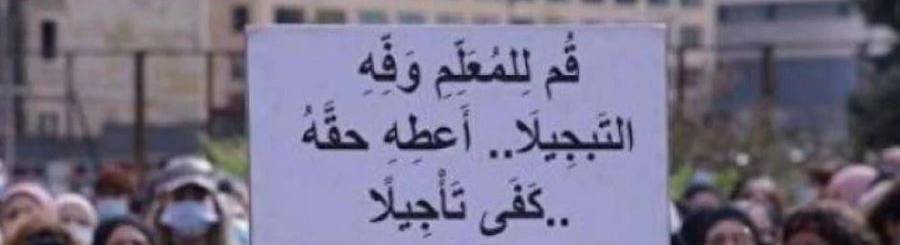 قُم لِلمُعَلِّمِ وَفِّهِ
التَبجِيلَا.. أَعطِهِ حقَّهُ
..كَفَى تَأْجِيلًا